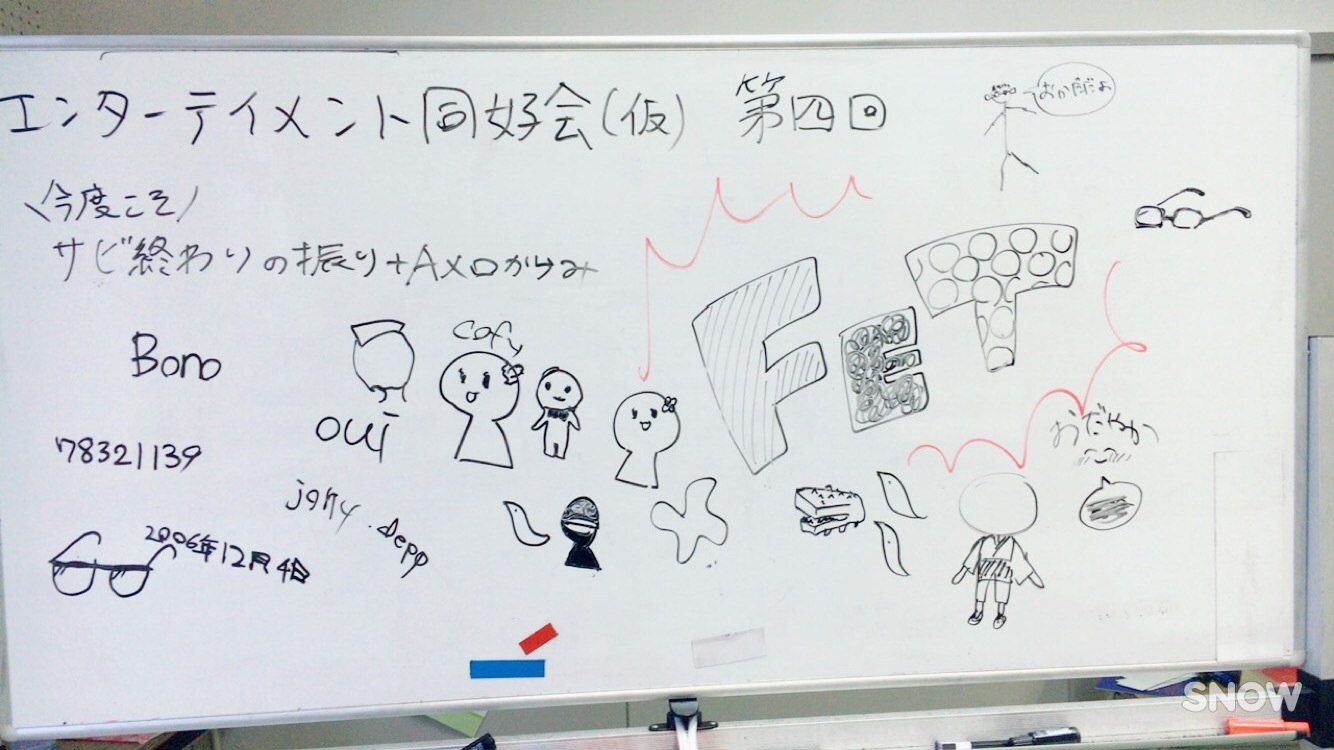 エンターテイメント同好会(仮) 第四回
\今度こそ/
サビ終わりの振り+Aメロかけみ
Bono
cofy
FET
oui
78321139
おだやか
jony.depp
2006年12月4日
SNOW